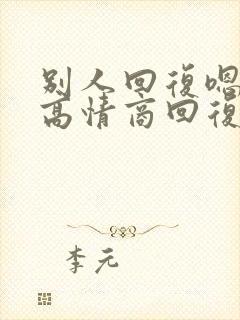 别人回復嗯
高情商回復
李元